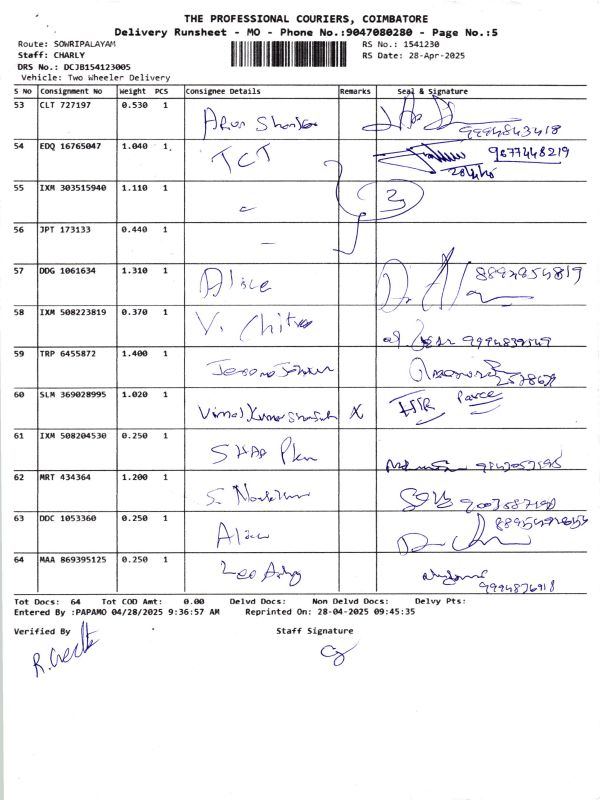 THE PROFESSIONAL COURIERS, COIMBATORE
Delivery Runsheet - MO - Phone No.:9047080280 - Page No.:5
Route: SOWRIPALAYAM RS No.: 1541230
Staff: CHARLY RS Date: 28-Apr-2025
DRS No.: DCJB154123005
Vehicle: Two Wheeler Delivery
S NO Consignment No Weight PCS Consignee Details Remarks Seal & Signature
53 CLT 727197 0.530 1 Arun 9994843418
54 EDQ 16765047 1.040 1 TCT 9677448219
55 IXM 303515940 1.110 1 3
56 JPT 173133 0.440 1
57 DDG 1061634 1.310 1 Alice
58 IXM 508223819 0.370 1 V. Chitra
59 TRP 6455872 1.400 1
60 SLM 369028995 1.020 1 Vimal Kumar X
61 IXM 508204530 0.250 1
62 MRT 434364 1.200 1 S.
63 DDC 1053360 0.250 1
64 MAA 869395125 0.250 1
Tot Docs: 64 Tot COD Amt: 0.00 Delvd Docs: Non Delvd Docs: Delvy Pts:
Entered By :PAPAMO 04/28/2025 9:36:57 AM Reprinted On: 28-04-2025 09:45:35
Verified By Staff Signature